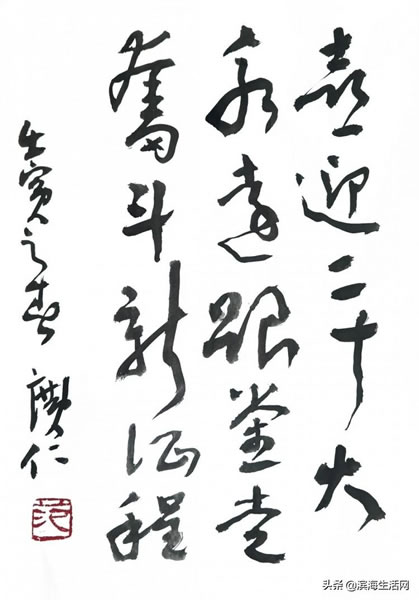 喜迎二十大
永遠跟党走
奮斗新征程
壬寅之春
头条 @滨海生活网